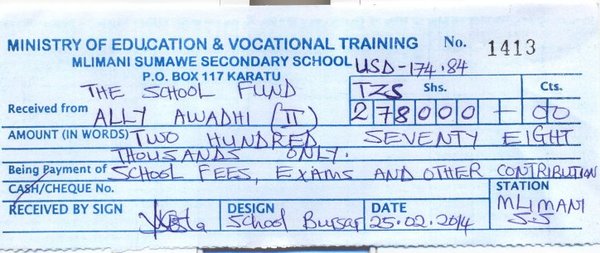 MINISTRY OF EDUCATION & VOCATIONAL TRAINING No. 1413
MLIMANI SUMAWE SECONDARY SCHOOL USD-174.84
P.O. BOX 117 KARATU
THE SCHOOL FUND TZS Shs. Cts.
Received from ALLY AWADHI (II) 278000 - 00
AMOUNT (IN WORDS) TWO HUNDRED SEVENTY EIGHT
THOUSANDS ONLY.
Being Payment of SCHOOL FEES, EXAMS AND OTHER CONTRIBUTION
CASH/CHEQUE No. STATION
RECEIVED BY SIGN DESIGN School Bursar DATE 25.02.2014 MLIMANI
S.S